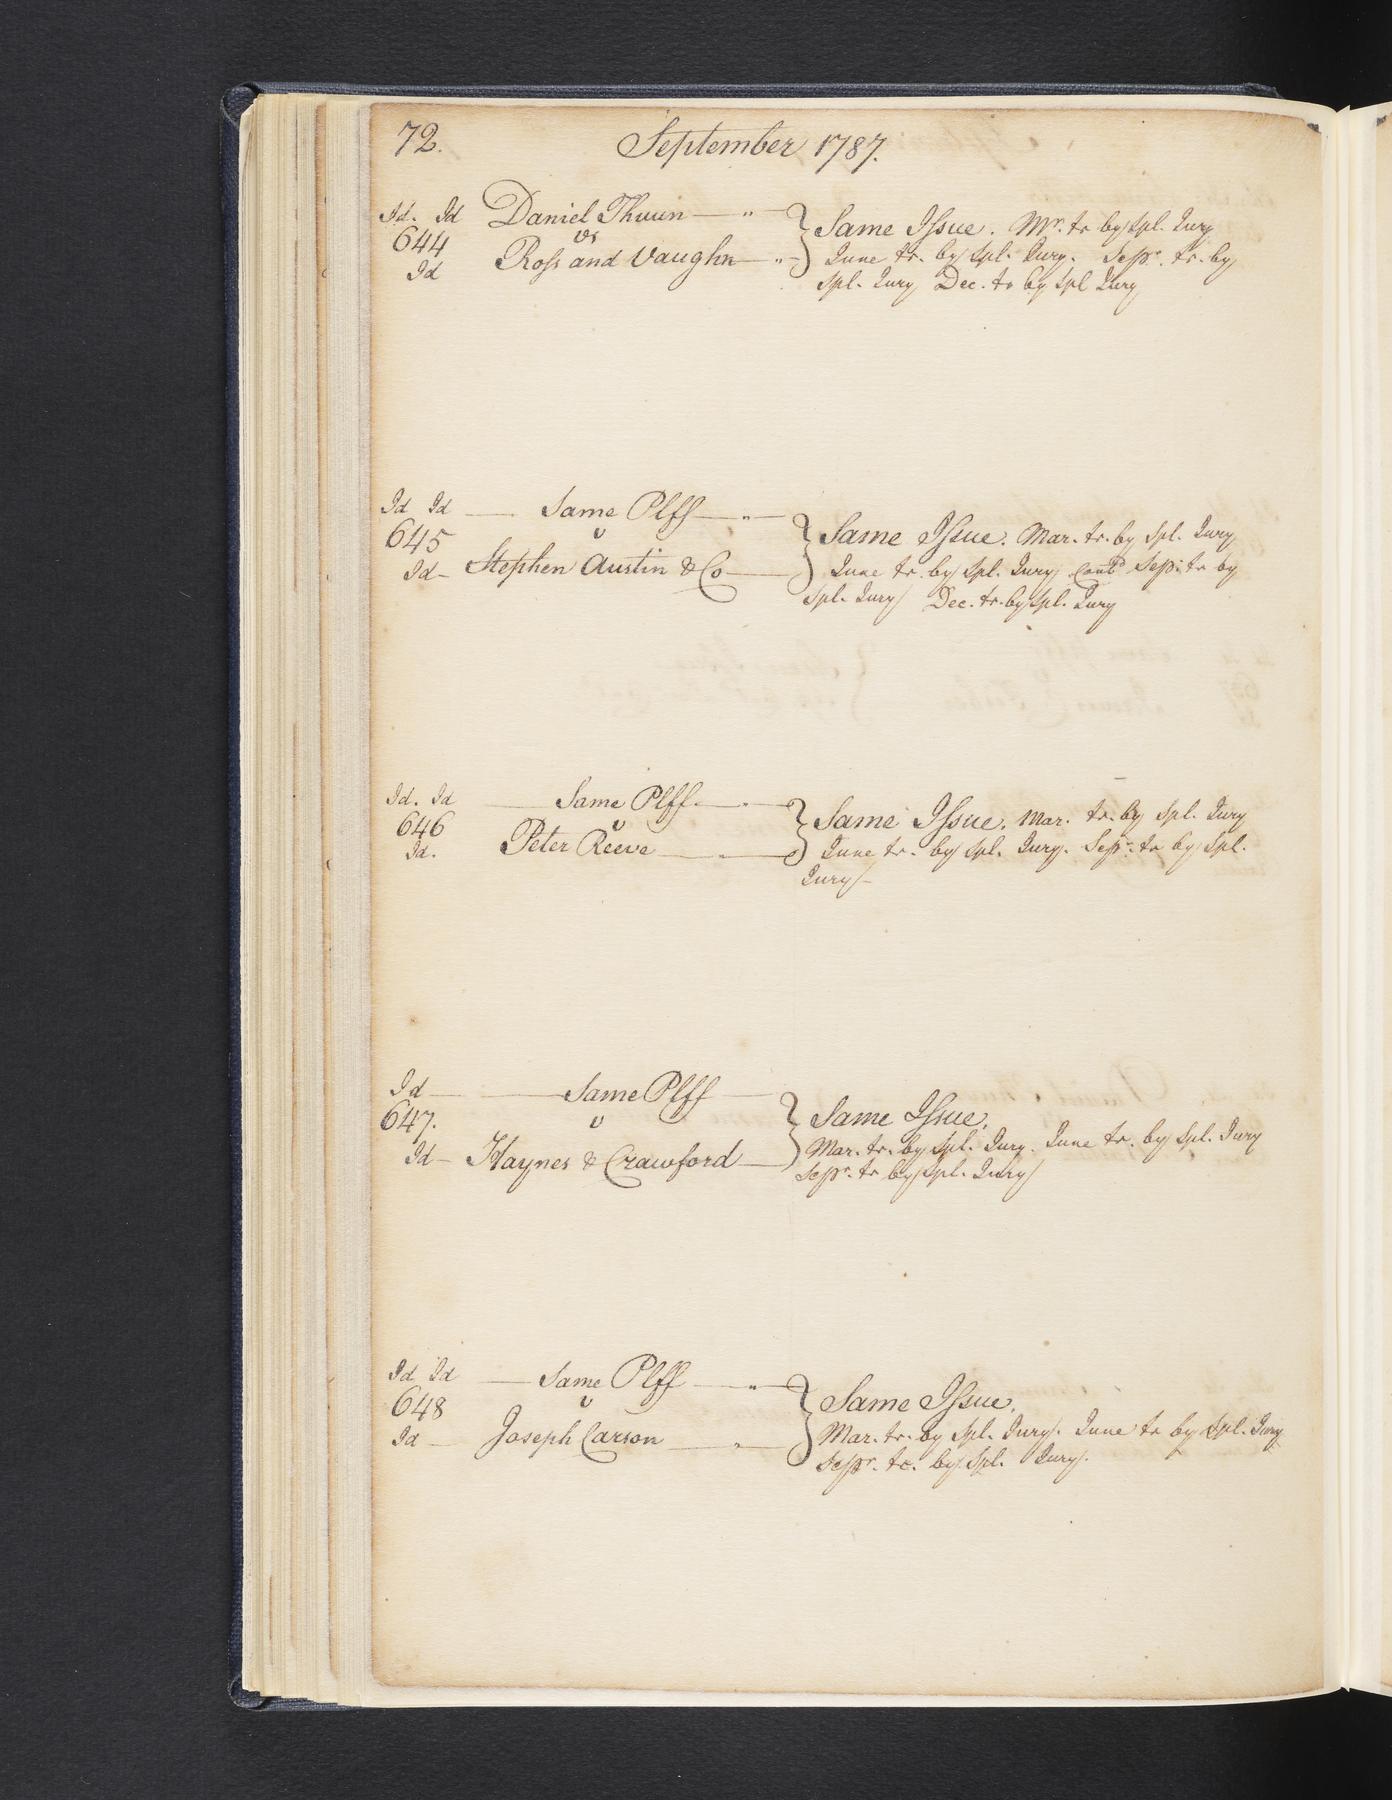 72. September 1787.
Id. Id Daniel Thuun — " — } Same Issue. Mr. tr by Spl. Jury
644 vs June tr. by Spl. Jury. Sepr. tr. by
Id Ross and Vaughn — " — Spl. Jury Dec. tr by Spl Jury
Id Id — Same Plff — " — } Same Issue. Mar. tr. by Spl. Jury
645 v June tr. by Spl. Jury Contd Sep: tr by
Id — Stephen Austin & Co — Spl. Jury Dec. tr. by Spl. Jury
Id. Id — Same Plff. — " — } Same Issue. Mar. tr. by Spl. Jury
646 v June tr. by Spl. Jury. Sepr. tr by Spl.
Id. Peter Reeve — " — Jury —
Id — Same Plff — } Same Issue.
647. v Mar. tr. by Spl. Jury. June tr. by Spl. Jury
Id — Haynes & Crawford — Sepr. tr by Spl. Jury
Id Id — Same Plff — " — } Same Issue.
648 v Mar. tr. by Spl. Jury. June tr by Spl. Jury
Id — Joseph Carson — " — Sepr. tr. by Spl. Jury.